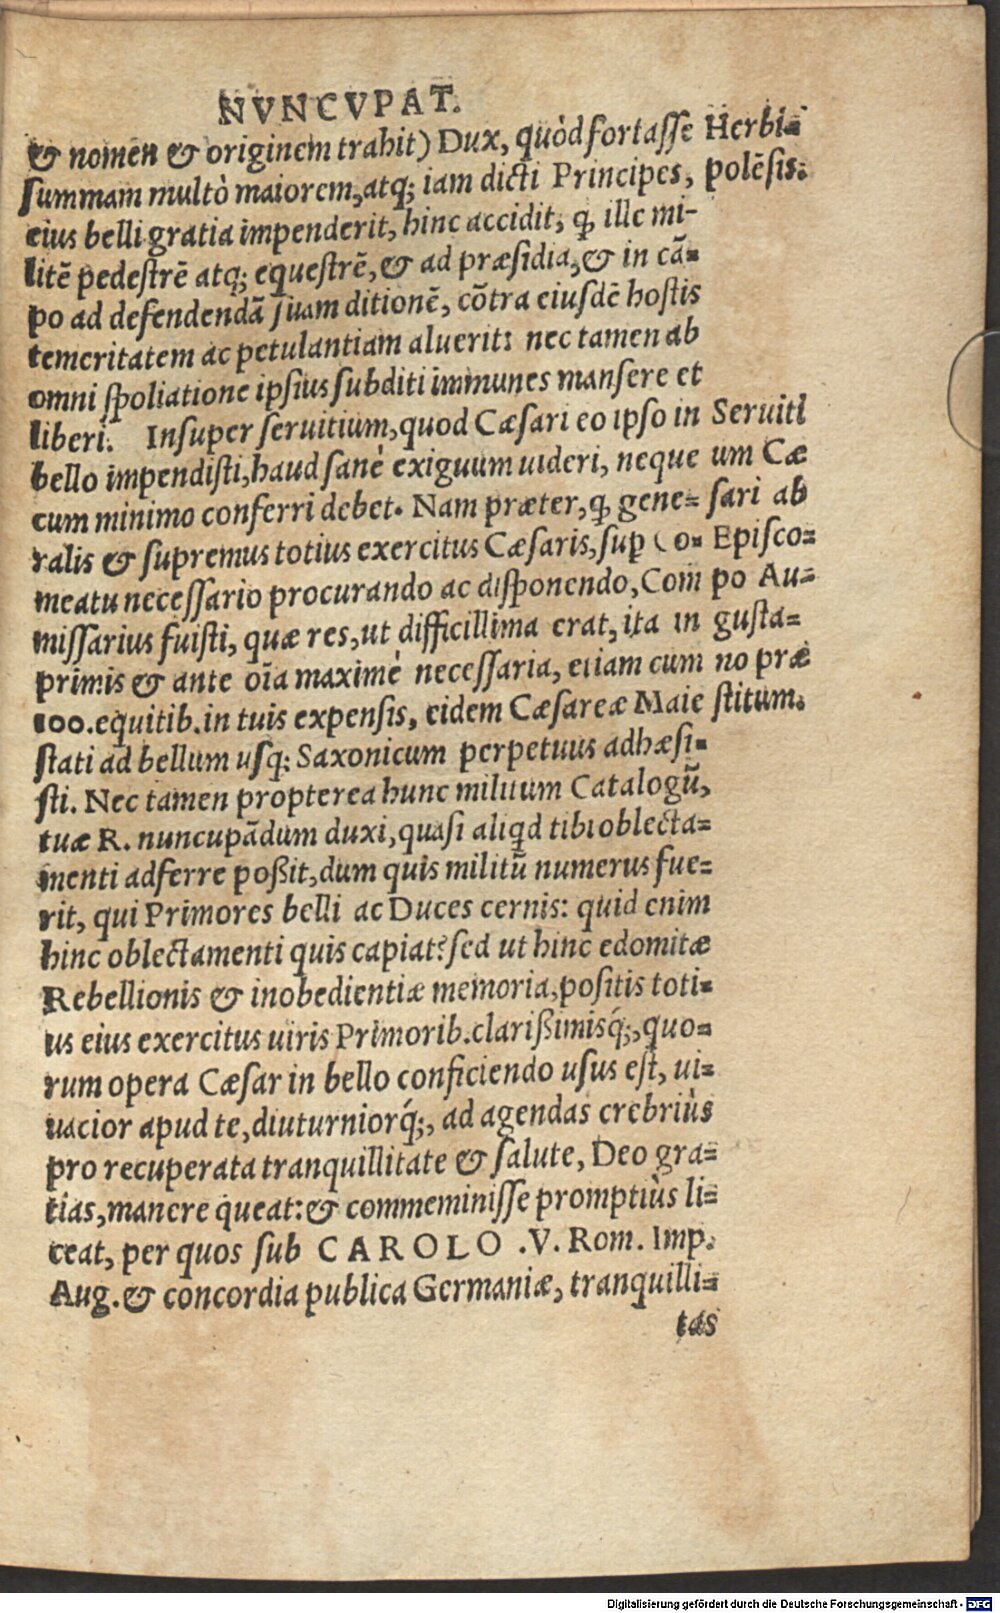 NVNCVPAT.
& nomen & originem trahit) Dux, quòd fortasse Herbi=
summam multò maiorem, atq; iam dicti Principes, polēsis.
eius belli gratia impenderit, hinc accidit, ꝙ ille mi-
litē pedestrē atq; equestrē, & ad præsidia, & in cā=
po ad defendendā suam ditionē, cōtra eiusdē hostis
temeritatem ac petulantiam aluerit: nec tamen ab
omni spoliatione ipsius subditi immunes mansere et
liberi. Insuper seruitium, quod Cæsari eo ipso in Seruiti
bello impendisti, haud sanè exiguum uideri, neque um Cæ
cum minimo conferri debet. Nam præter, ꝙ gene= sari ab
ralis & supremus totius exercitus Cæsaris, suꝑ Co= Episco=
meatu necessario procurando ac disponendo, Com po Au=
missarius fuisti, quæ res, ut difficillima erat, ita in gusta=
primis & ante oīa maximè necessaria, etiam cum no præ
100. equitib. in tuis expensis, eidem Cæsareæ Maie stitum.
stati ad bellum usq; Saxonicum perpetuus adhæsi=
sti. Nec tamen propterea hunc militum Catalogū,
tuæ R. nuncupādum duxi, quasi aliqd tibi oblecta=
menti adferre poßit, dum quis militū numerus fue=
rit, qui Primores belli ac Duces cernis: quid enim
hinc oblectamenti quis capiat? sed ut hinc edomitæ
Rebellionis & inobedientiæ memoria, positis toti=
us eius exercitus uiris Primorib. clarißimisq́;, quo=
rum opera Cæsar in bello conficiendo usus est, ui=
uacior apud te, diuturniorq́;, ad agendas crebriùs
pro recuperata tranquillitate & salute, Deo gra=
tias, manere queat: & commeminisse promptiùs li=
ceat, per quos sub CAROLO .V. Rom. Imp.
Aug. & concordia publica Germaniæ, tranquilli=
tas
Digitalisierung gefördert durch die Deutsche Forschungsgemeinschaft - DFG